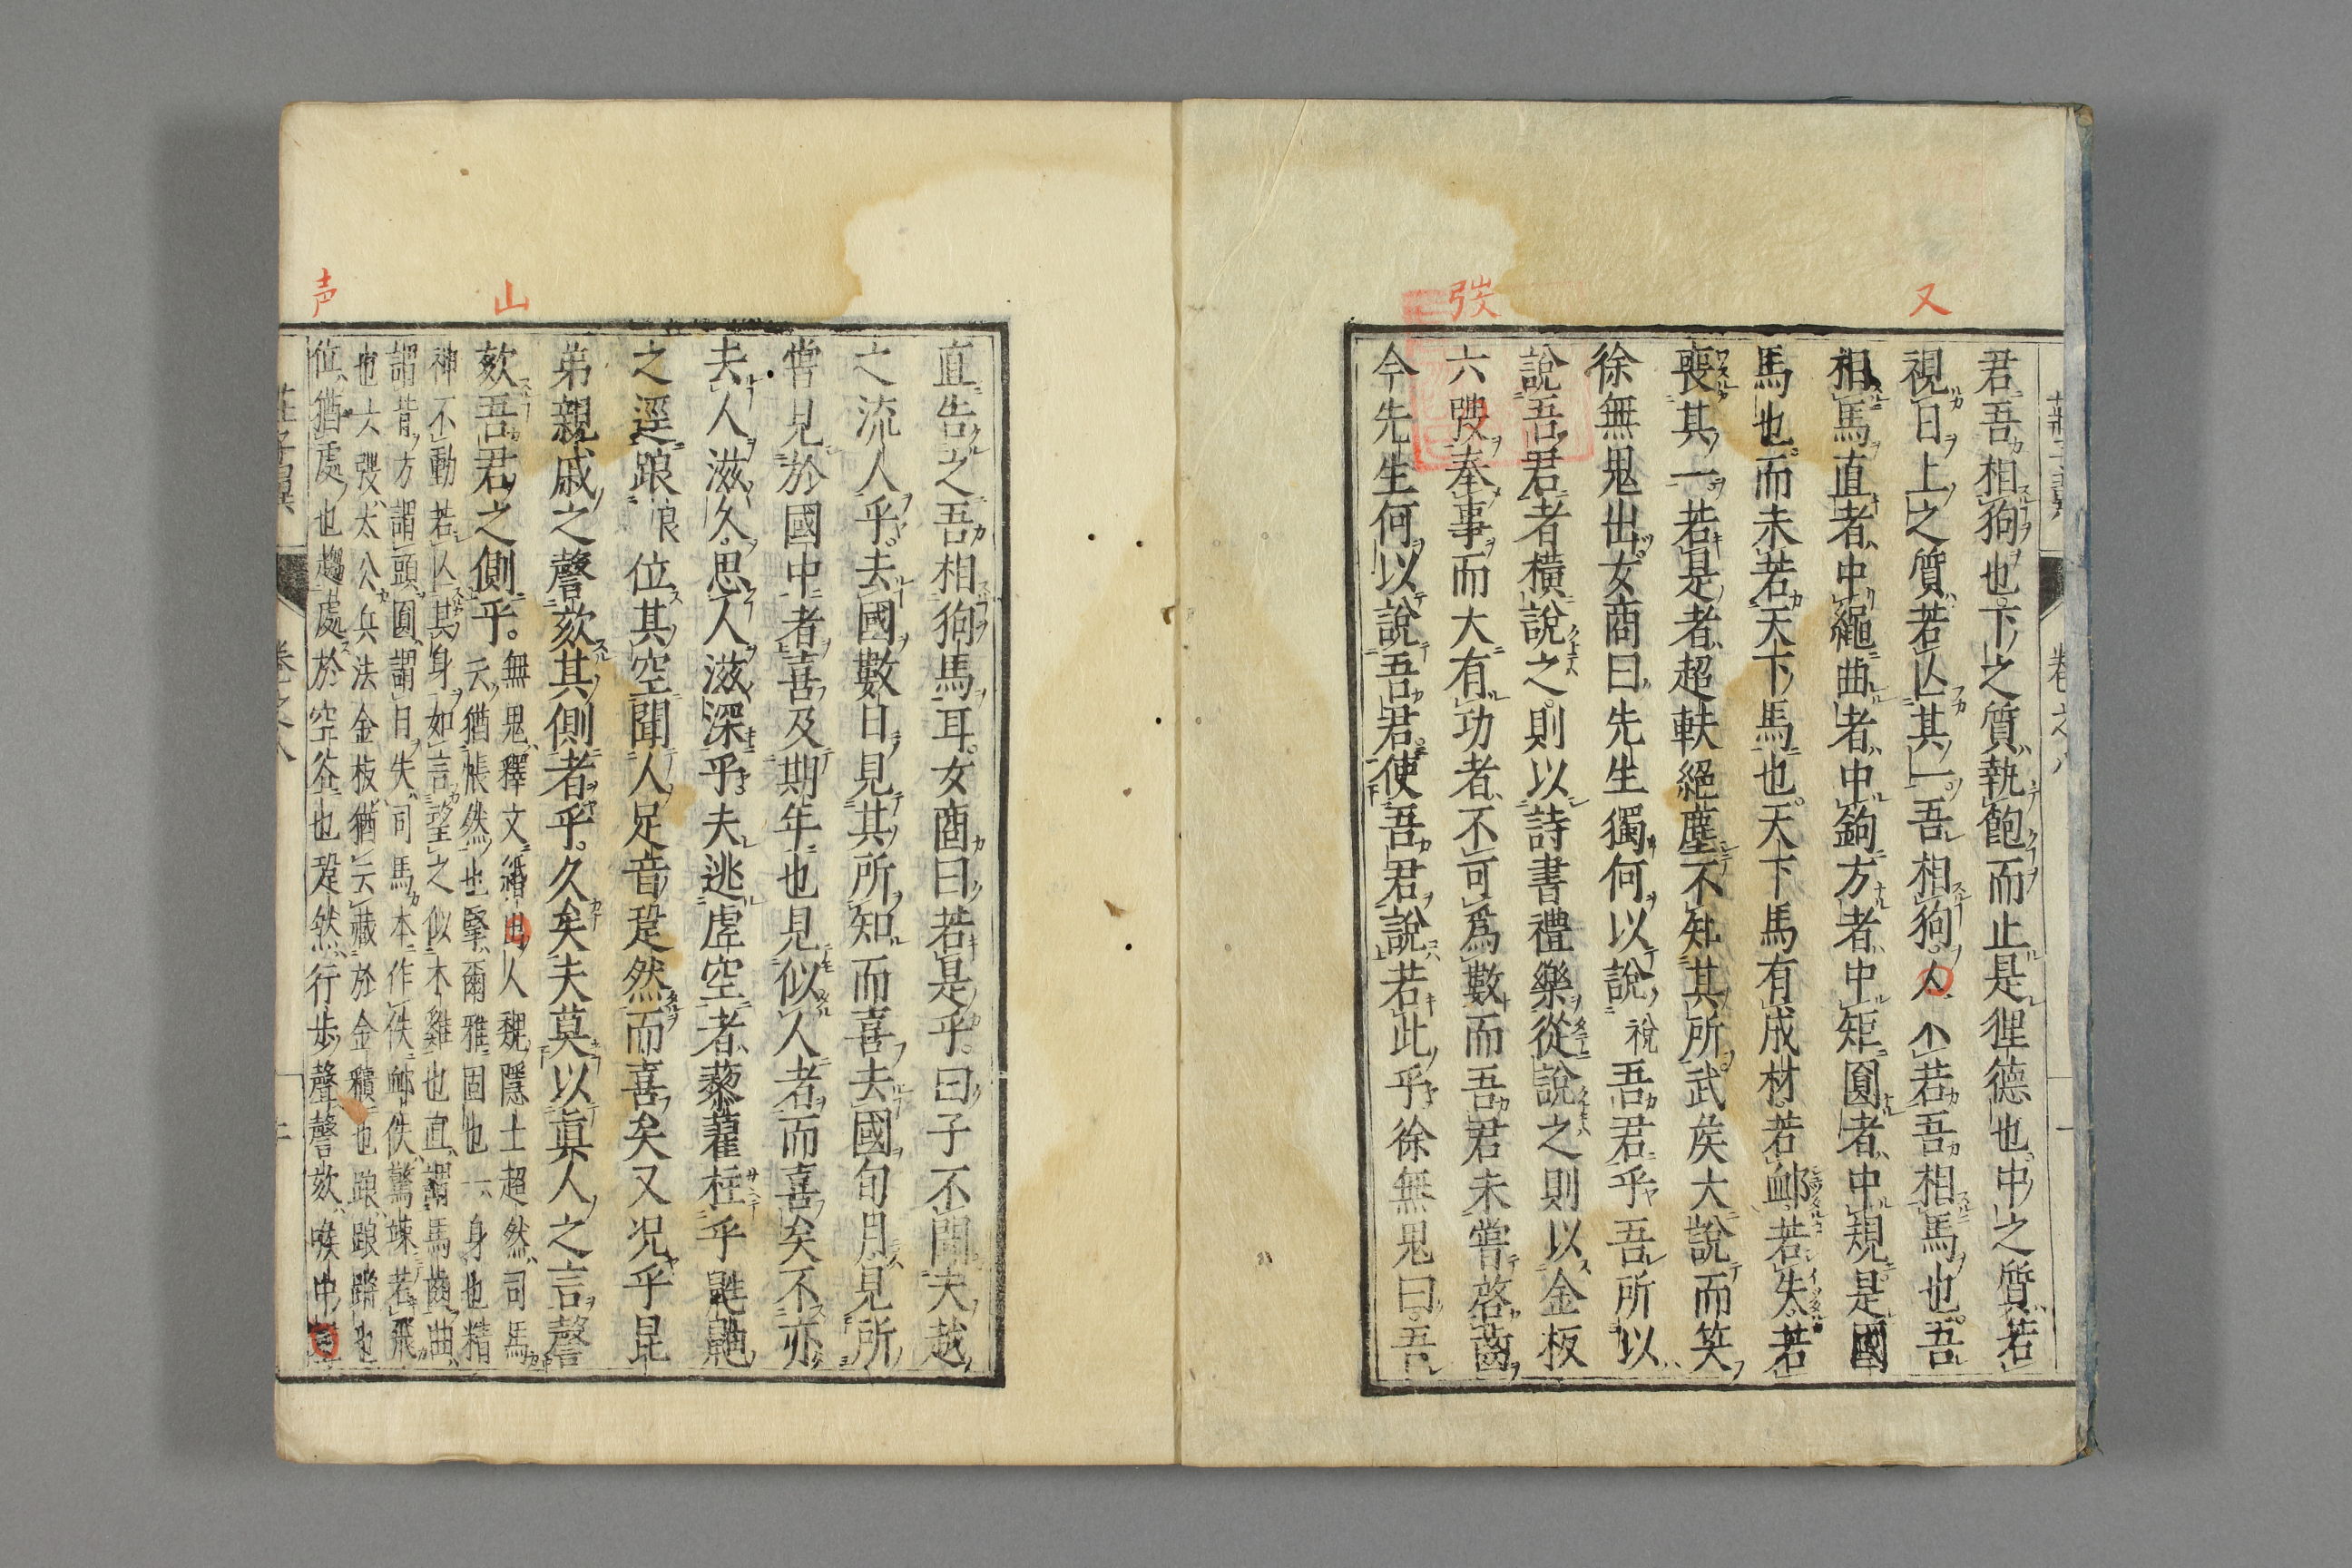 又
弢
君吾相狗也下之質執飽而止是狸德也中之質若
視日上之質若亾其一吾相狗人不若吾相馬也吾
相馬直者中繩曲者中鉤方者中矩圓者中規是國
馬也而未若天下馬也天下馬有成材若䘏若失若
喪其一若是者超軼絕塵不知其所武侯大說而笑
徐無鬼出女商曰先生獨何以說 稅 吾君乎吾所以
說吾君者橫說之則以詩書禮樂從說之則以金板
六弢奉事而大有功者不可爲數而吾君未嘗啓齒
今先生何以說吾君使吾君說若此乎徐無鬼曰吾
山
声
直告之吾相狗馬耳女商曰若是乎曰子不聞夫越
之流人乎去國數日見其所知而喜去國旬月見所
嘗見於國中者喜及期年也見似人者而喜矣不亦
夫人滋久思人滋深乎夫逃虛空者藜藋柱乎鼪鼬
之逕踉 浪 位其空聞人足音跫然而喜矣又况乎昆
弟親戚之謦欬其側者乎久矣夫莫以眞人之言謦
欬吾君之側乎
無鬼釋文緡 人魏隱士超然司馬
云猶悵然也掔爾雅固也一身也精
神不動若亾其身如言望之似木雞也直謂馬齒曲
謂背方謂頭圓謂目失司馬本作佚䘏佚驚竦若飛
也六弢太公兵法金板猶云藏於金穦也踉踉蹡也
位猶處也趨處於空谷也跫然行步聲謦欬喉中
莊子翼
卷之八